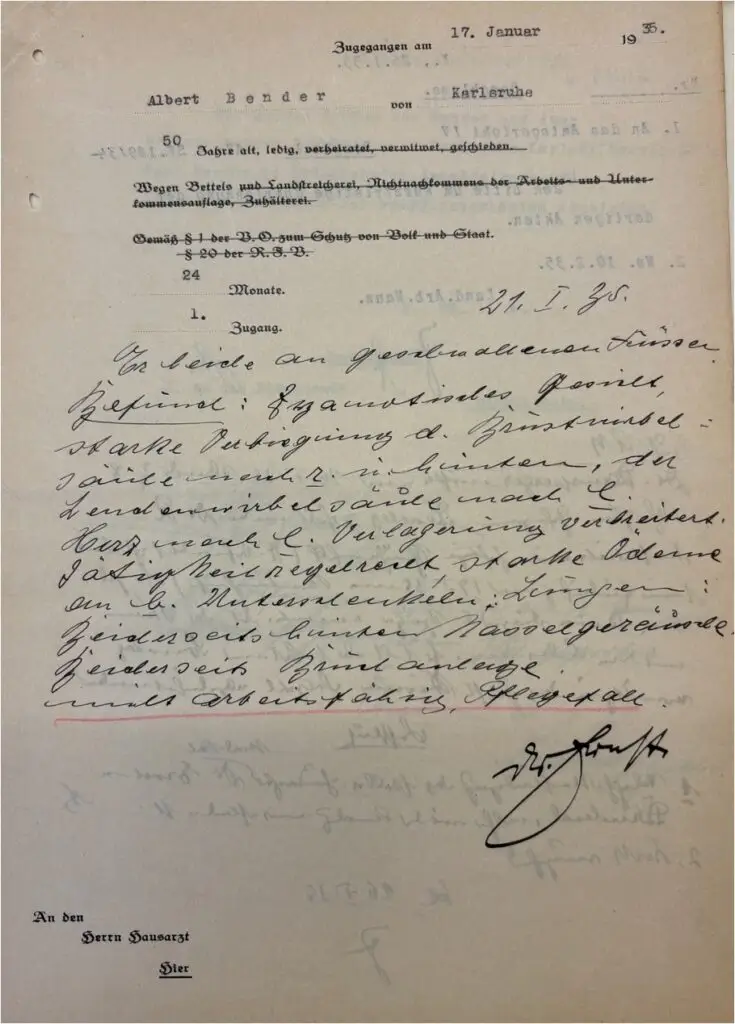 Zugegangen am 17. Januar 1935.
Albert Bender von Karlsruhe
50 Jahre alt, ledig, verheiratet, verwitwet, geschieden.
Wegen Bettels und Landstreicherei, Nichtnachkommens der Arbeits- und Unter-
kommensauflage, Zuhälterei.
Gemäß § 1 der V.O. zum Schutz von Volk und Staat.
§ 20 der R.F.V.
24 Monate.
1. Zugang.
21. I. 35.
Er leide an geschwollenen Füssen.
Befund: Zyanotisches Gesicht,
starke Verbiegung d. Brustwirbel-
säule nach r. u. hinten, der
Lendenwirbelsäule nach l.
Herz nach l. Verlagerung verbreitert.
Tätigkeit regelrecht, starke Ödeme
an b. Unterschenkeln; Lungen:
Beiderseits hinten Rasselgeräusche.
Beiderseits Bruchanlage.
nicht arbeitsfähig, Pflegefall.
Dr. Ernst.
An den
Herrn Hausarzt
Hier